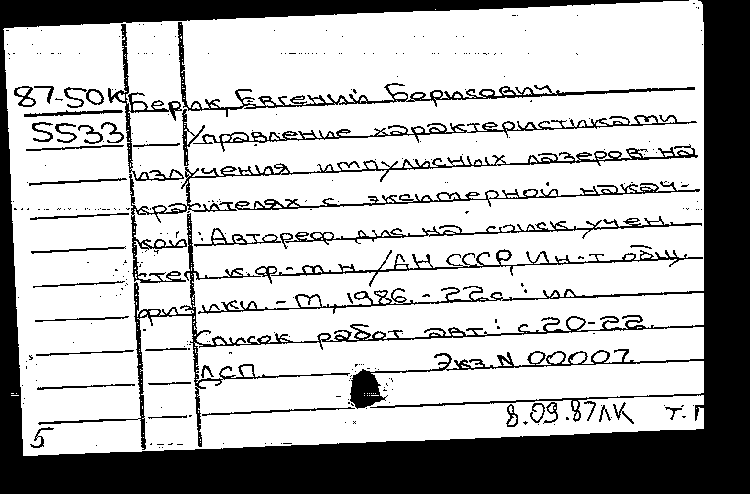 87-50к Берик, Евгений Борисович.
5533 Управление характеристиками
излучения импульсных лазеров на
красителях с эксимерной накач-
кой: Автореф. дис. на соиск. учен.
степ. к.ф.-м.н. /АН СССР, Ин-т общ.
физики. - М., 1986. - 22с.: ил.
Список работ авт.: с.20-22.
ДСП. Экз. N 00007.
8.09.87ЛК т. Г
5